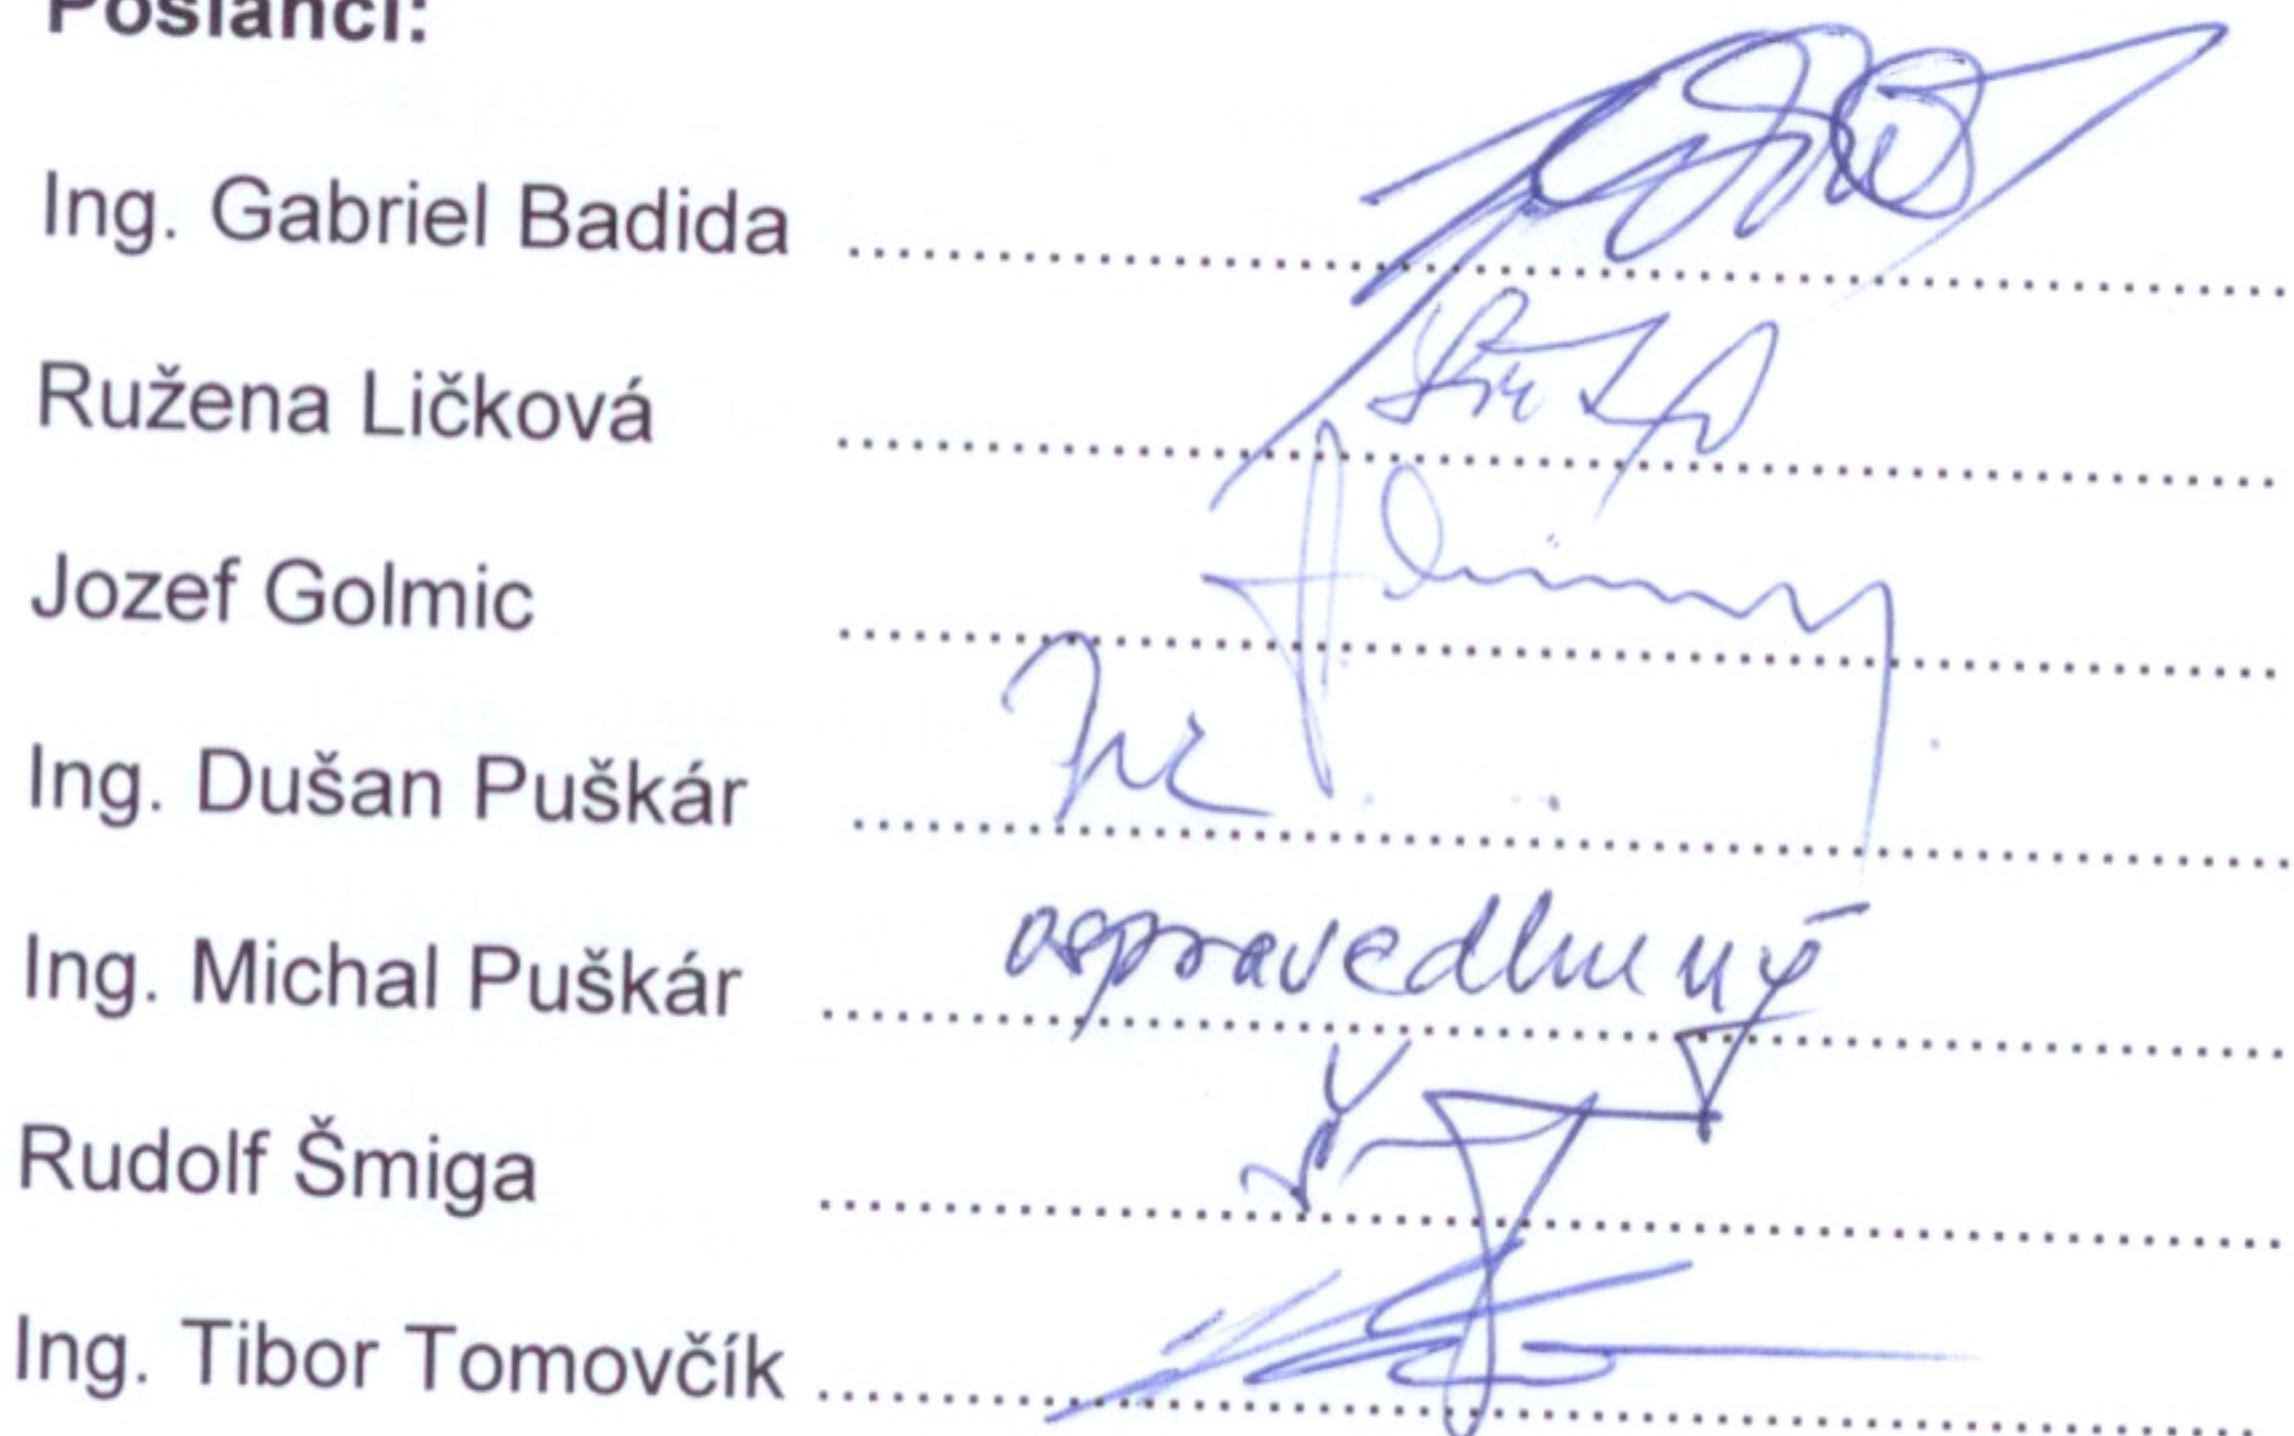 Poslanci:
Ing. Gabriel Badida ..........
Ružena Ličková ..........
Jozef Golmic ..........
Ing. Dušan Puškár ..........
Ing. Michal Puškár .......... ospravedlnený
Rudolf Šmiga ..........
Ing. Tibor Tomovčík ..........